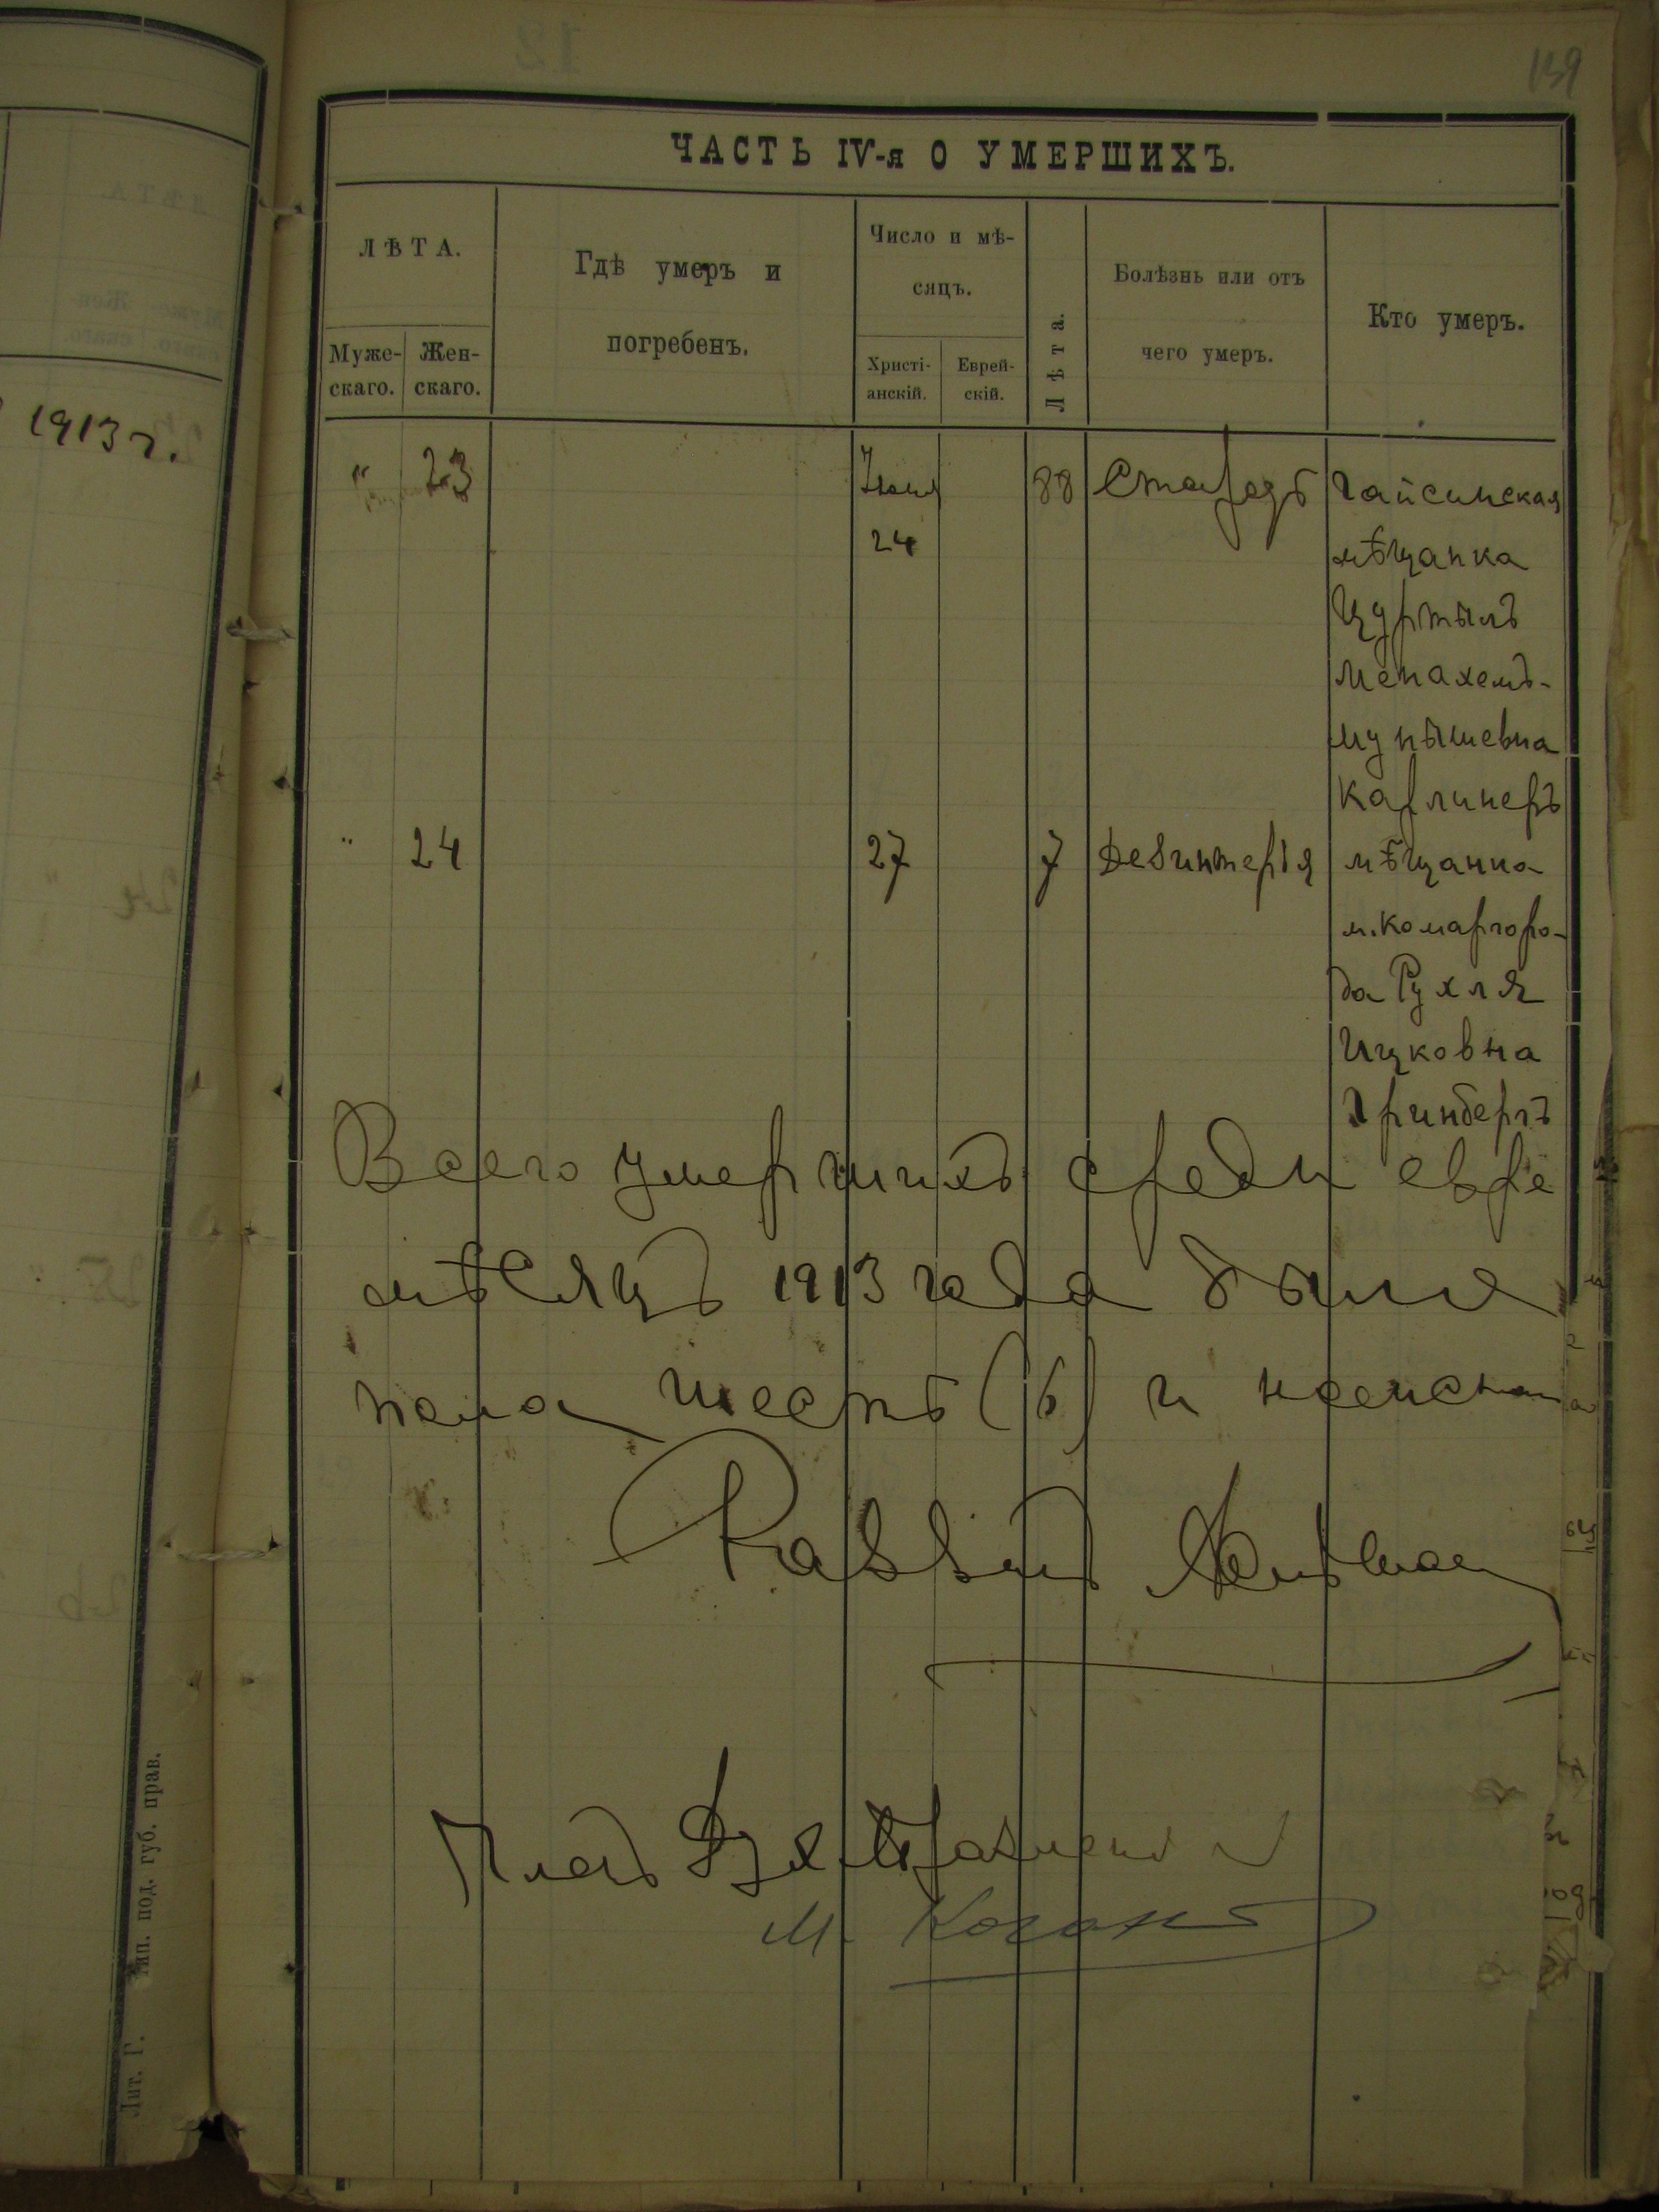 139
ЧАСТЬ IV-я О УМЕРШИХЪ.
ЛѢТА.
Муже-
скаго.
Жен-
скаго.
Гдѣ умеръ и
погребенъ.
Число и мѣ-
сяцъ.
Христі-
анскій.
Еврей-
скій.
Лѣта.
Болѣзнь или отъ
чего умеръ.
Кто умеръ.
1913 г.
" 23 Іюня 88 Старость Гайсинская
24 мѣщанка
Цуртыль
Менахемъ-
Мунышевна
Карлинеръ
" 24 27 7 Дезинтерія мѣщанка
м. Комаргоро-
да Рухля
Ицковна
Гринбергъ
Всего умершихъ среди евре
мѣсяцъ 1913 года было
пола шесть (6) и женска
Раввинъ
М. Коганъ
Лит. Г. тип. под. губ. прав.